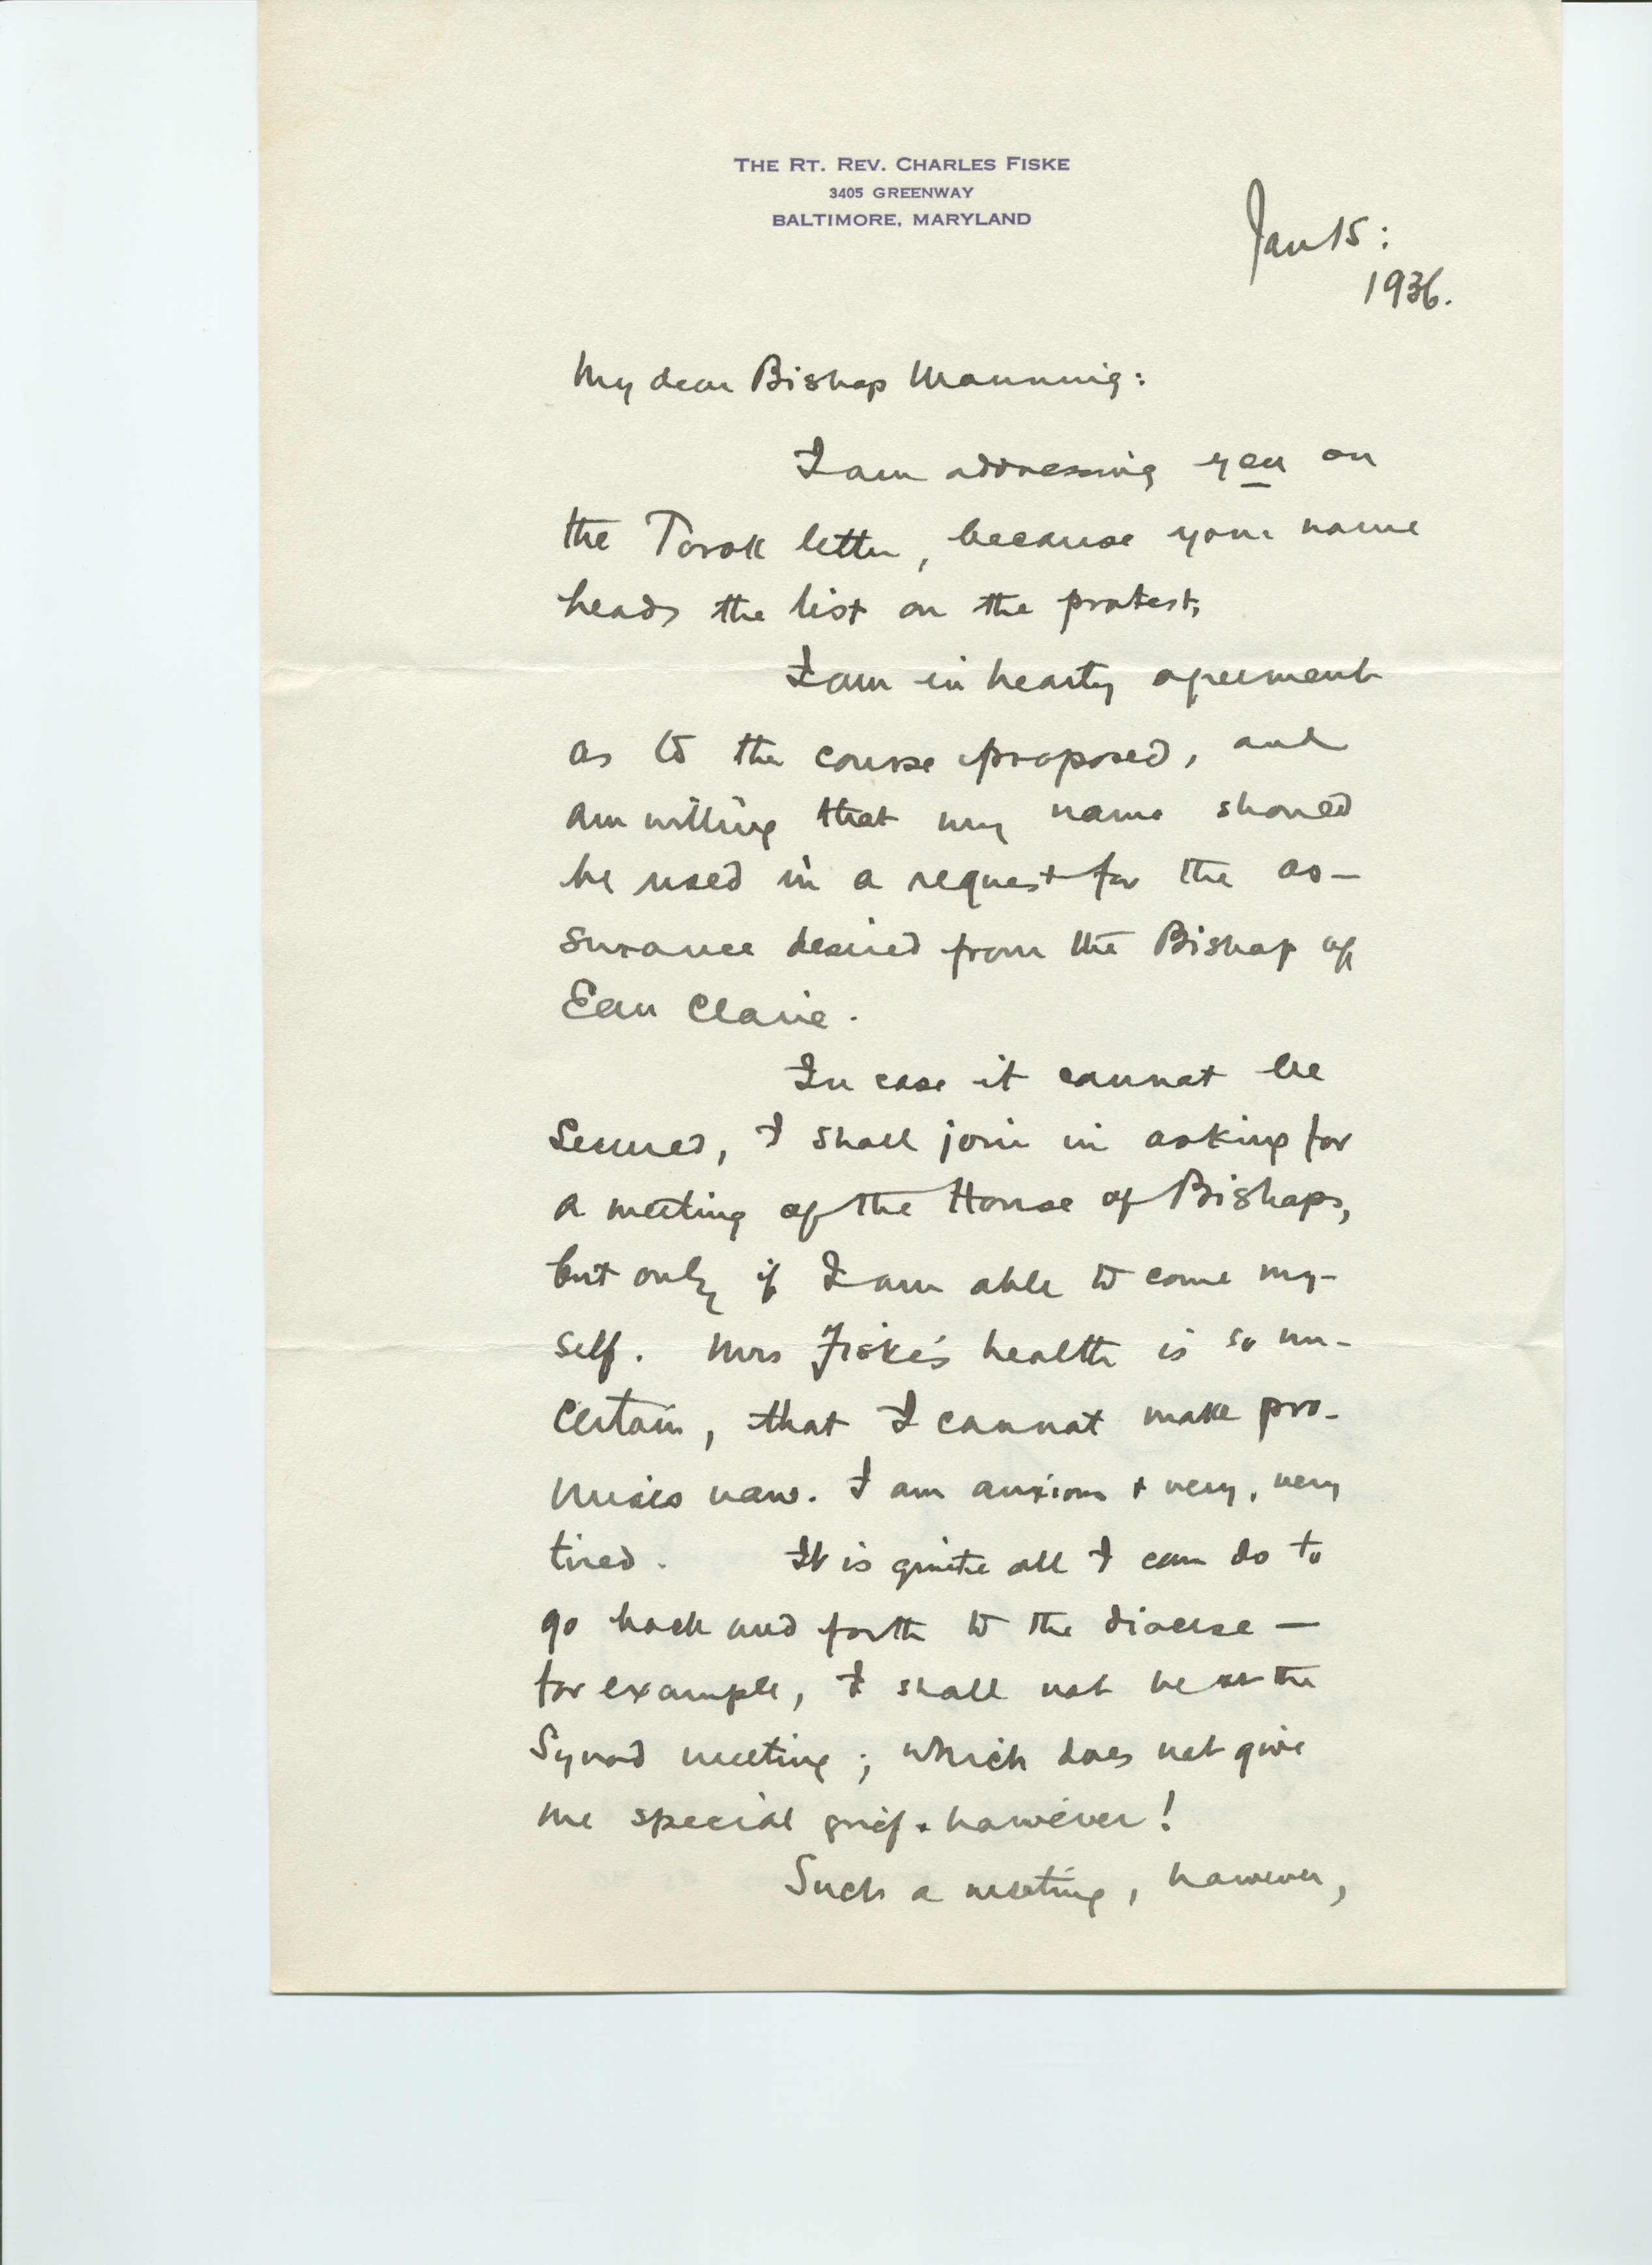 THE RT. REV. CHARLES FISKE
3405 GREENWAY
BALTIMORE, MARYLAND
Jan 15:
1936.
My dear Bishop Manning:
I am addressing you on
the Torok letter, because your name
heads the list on the protest.
I am in hearty agreement
as to the course proposed, and
am willing that my name should
be used in a request for the as-
surance desired from the Bishop of
Eau Claire.
In case it cannot be
secured, I shall join in asking for
a meeting of the House of Bishops,
but only if I am able to come my-
self. Mrs Fiske's health is so un-
certain, that I cannot make pro-
mises now. I am anxious + very, very
tired. It is quite all I can do to
go back and forth to the diocese —
for example, I shall not be at the
Synod meeting; which does not give
me special grief. however!
Such a meeting, however,